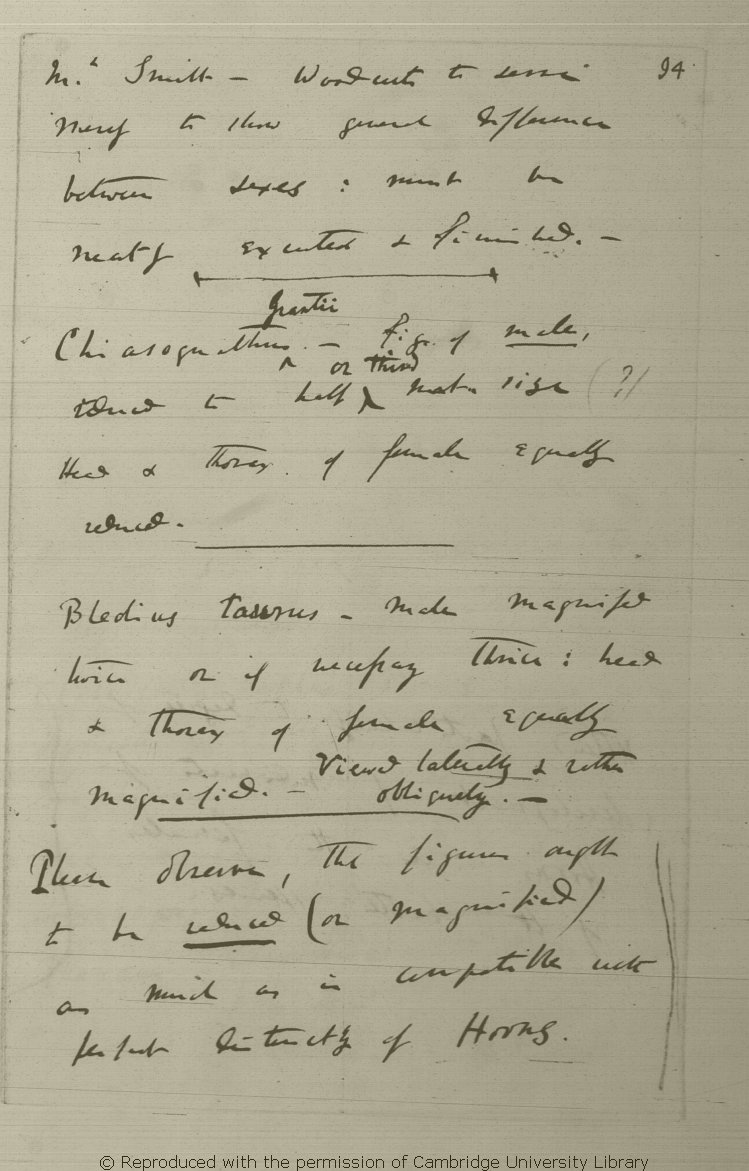 Mr Smith — Woodcuts to serve 94
merely to show general difference
between sexes: must be
neatly executed & finished. —
Grantii
Chiasognathus. — Fig. of male,
or third
reduced to half natr. size (?)
Head & thorax of female equally
reduced.
Bledius Taurus — Male magnified
twice or if necessary thrice: head
& thorax of female equally
Viewed laterally & rather
magnified. — obliquely. —
Please observe, the figures ought
to be reduced (or magnified)
as much as is compatible with
perfect distinctness of Horns.
© Reproduced with the permission of Cambridge University Library